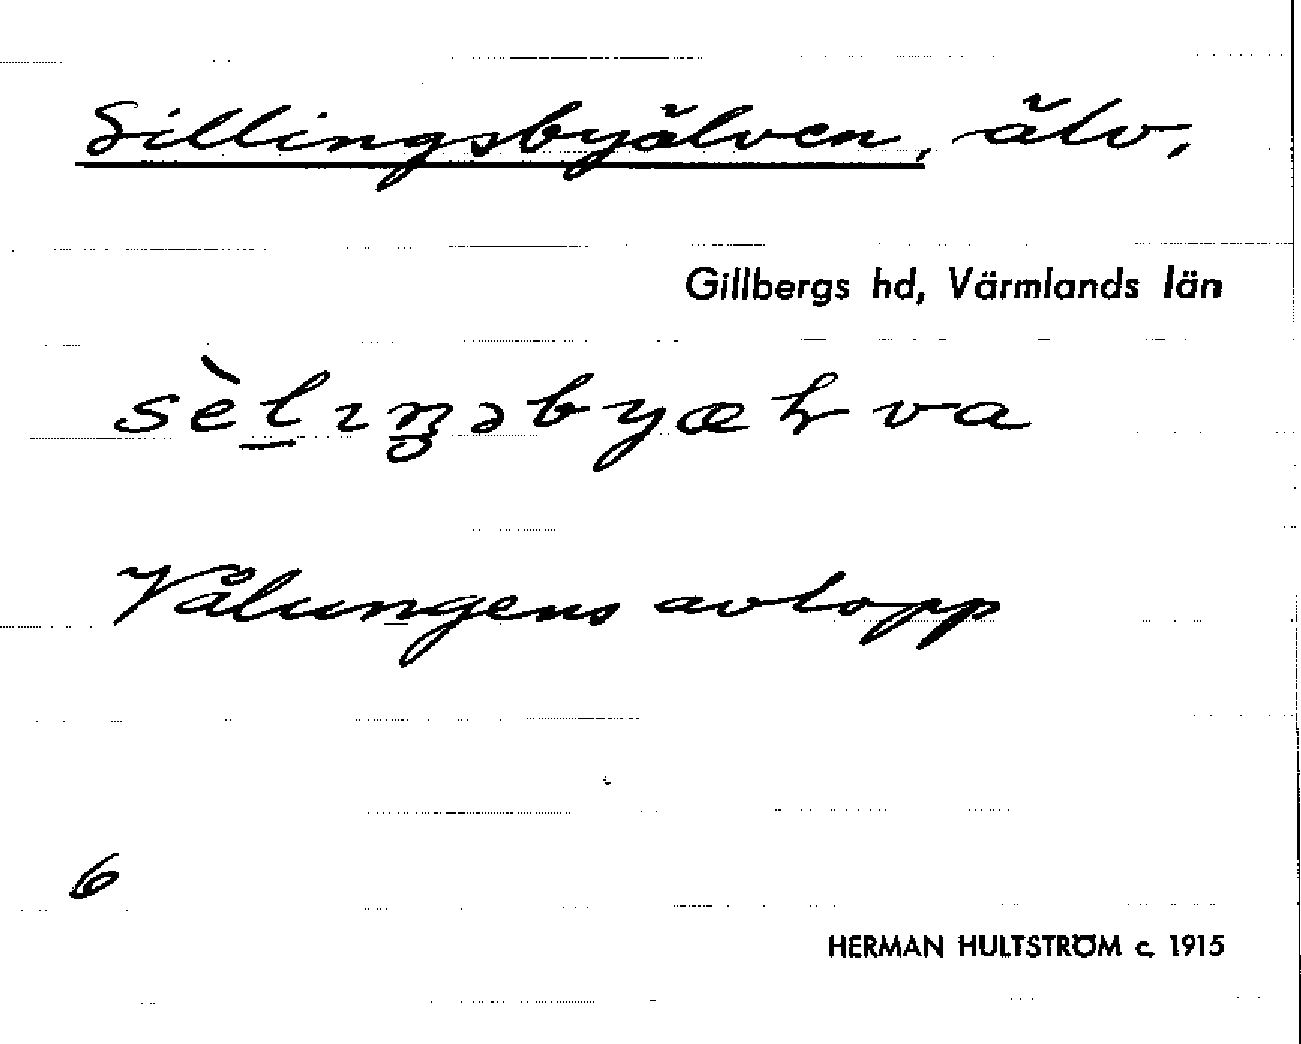 Sillingsbyälven, älv,
Gillbergs hd, Värmlands län
Vålungens avlopp
6
HERMAN HULTSTRÖM c. 1915